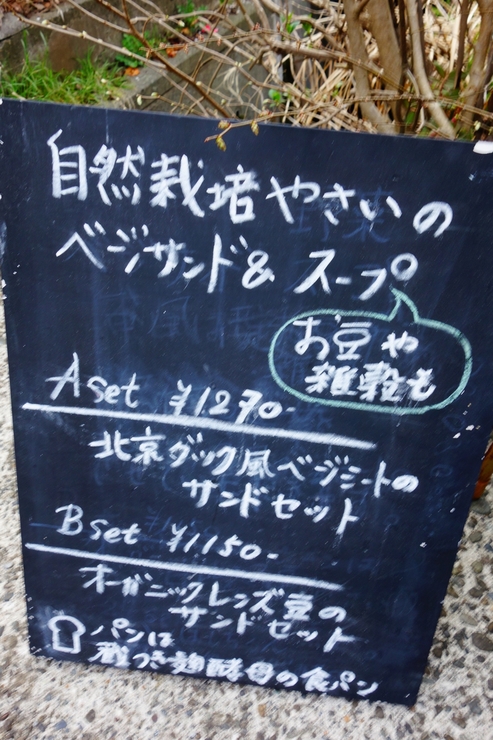 自然栽培やさいの
ベジサンド& スープ
お豆や
雑穀も
A set ¥1270-
北京ダック風ベジミートの
サンドセット
B set ¥1150-
オーガニックレンズ豆の
サンドセット
パンは
蔵つき麹酵母の食パン